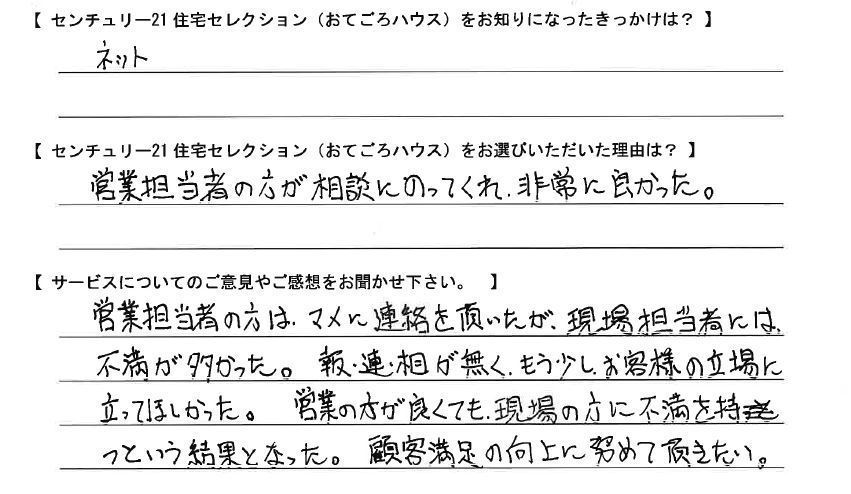 【 センチュリー21住宅セレクション（おてごろハウス）をお知りになったきっかけは？ 】
ネット
【 センチュリー21住宅セレクション（おてごろハウス）をお選びいただいた理由は？ 】
営業担当者の方が相談にのってくれ、非常に良かった。
【 サービスについてのご意見やご感想をお聞かせ下さい。 】
営業担当者の方は、マメに連絡を頂いたが、現場担当者には、
不満が多かった。 報・連・相が無く、もう少しお客様の立場に
立ってほしかった。 営業の方が良くても、現場の方に不満を持
つという結果となった。 顧客満足の向上に努めて頂きたい。